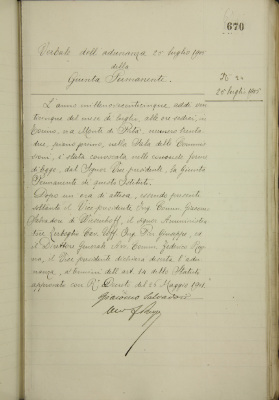 670
Verbale dell'adunanza 25 luglio 1905
della
Giunta Permanente.
N. 22
25 luglio 1905
L'anno millenovecentocinque, addì venticinque
del mese di luglio, alle ore sedici, in
Torino, via Monte di Pietà, numero trentadue,
primo piano, nella Sala delle Commissioni,
è stata convocata nelle consuete forme
di legge, dal Signor Vice presidente, la Giunta
Permanente di questo Istituto.
Dopo un'ora di attesa, essendo presente
soltanto il Vice presidente Ing. Comm. Giacomo
Salvadori di Wiesenhoff, il signor Amministratore
Cav. Uff. Ing. Giuseppe, ed
il Direttore Generale Avv. Comm. Federico
il Vice presidente dichiara deserta l'adunanza,
a termini dell'art. 22 dello Statuto
approvato con R.° Decreto del 26 Maggio 1901.
Giacomo Salvadori